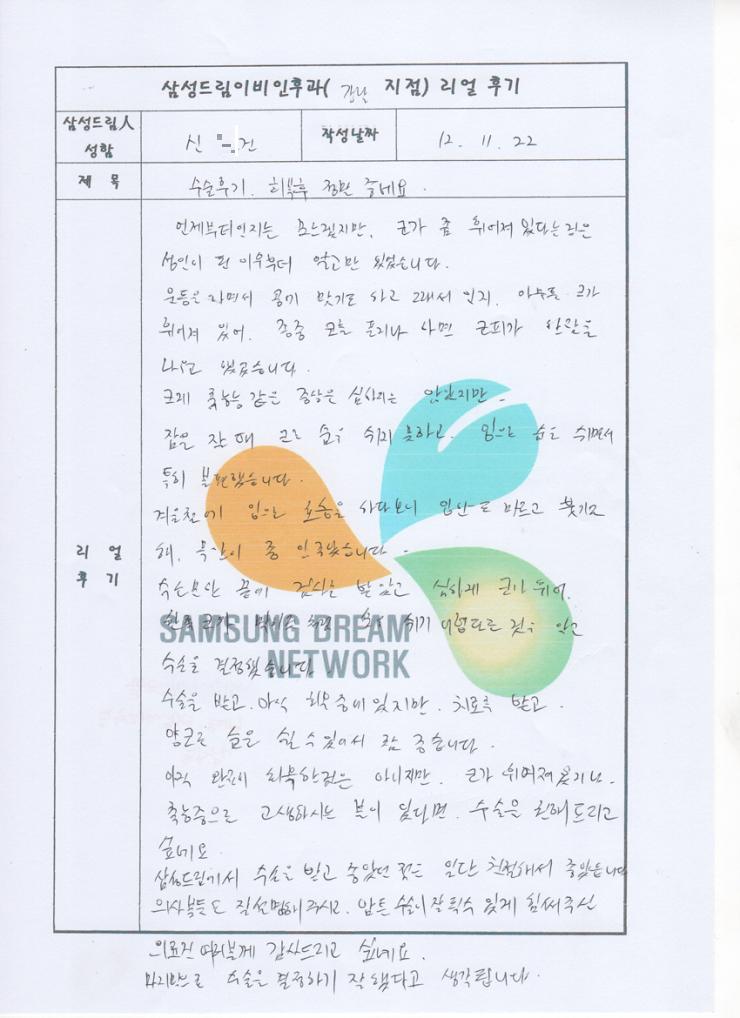 삼성드림이비인후과( 강남 지점) 리얼 후기
삼성드림人 성함
신 건
작성날짜
12. 11. 22
제 목
수술후기. 회복후 정말 좋네요.
리 얼 후 기
언제부터인지는 모르겠지만, 코가 좀 휘어져 있다는 것은
성인이 된 이후부터 알고만 있었습니다.
운동을 하면서 공에 맞기도 하고 그래서 인지, 아무튼 코가
휘어져 있어, 종종 코를 풀거나 하면 코피가 한달을
나오고 했었습니다.
크게 축농증 같은 증상은 심하지는 않았지만.
잠을 잘 때 코로 숨을 쉬지 못하고, 입으로 숨을 쉬면서
특히 불편했습니다.
겨울철에 입으로 호흡을 하다보니 입안도 마르고 붓기도
해, 목감이 좀 안좋았습니다.
끝에 검사를 받았고 심하게 코가 휘어,
SAMSUNG DREAM NETWORK
숨을 쉬기 힘들다는 것을 알고
수술을 결정했습니다.
수술을 받고, 아직 회복 중에 있지만, 치료를 받고.
양코로 숨을 쉴 수 있어서 참 좋습니다.
아직 완전히 회복한것은 아니지만. 코가 휘어져 있거나.
축농증으로 고생하시는 분이 있다면, 수술을 권해드리고
싶네요.
삼성드림에서 수술을 받고 좋았던 점은 일단 친절해서 좋았습니다
의사분들도 잘설명해주시고. 암튼 수술이 잘 될수 있게 힘써주신
의료진 여러분께 감사드리고 싶네요.
마지막으로 수술을 결정하기 잘 했다고 생각됩니다.